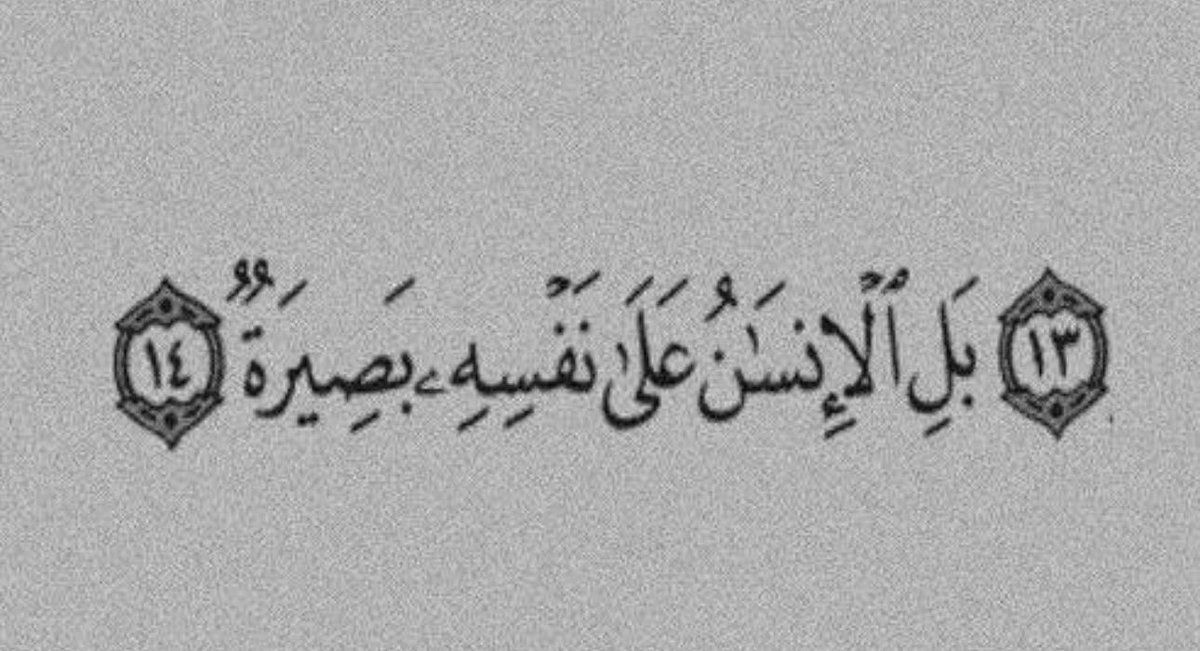 ١٣ بَلِ ٱلْإِنسَٰنُ عَلَىٰ نَفْسِهِۦ بَصِيرَةٌ ١٤